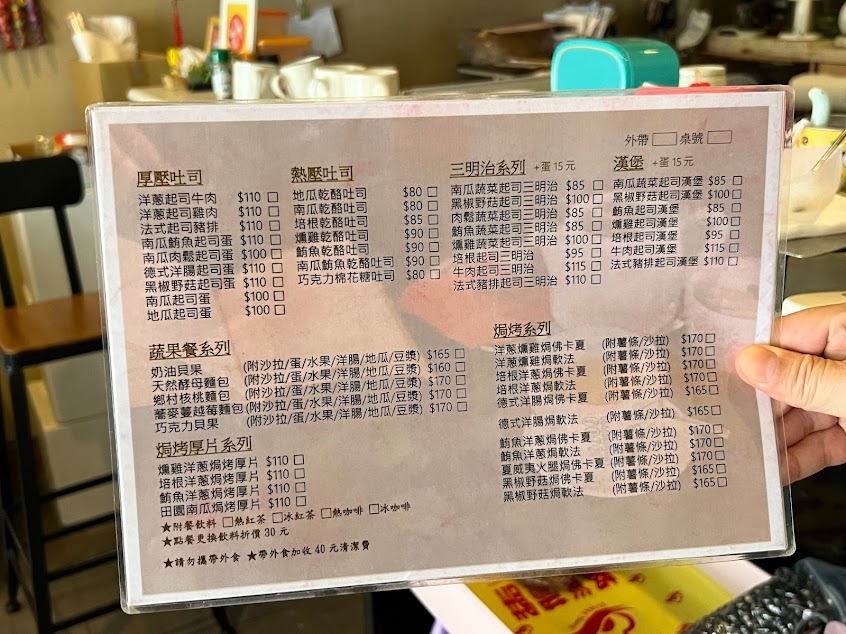 外帶 □ 桌號 □
厚壓吐司
洋蔥起司牛肉 $110 □
洋蔥起司雞肉 $110 □
法式起司豬排 $110 □
南瓜鮪魚起司蛋 $110 □
南瓜肉鬆起司蛋 $100 □
德式洋腸起司蛋 $110 □
黑椒野菇起司蛋 $110 □
南瓜起司蛋 $100 □
地瓜起司蛋 $100 □
熱壓吐司
地瓜乾酪吐司 $80 □
南瓜乾酪吐司 $80 □
培根乾酪吐司 $85 □
燻雞乾酪吐司 $90 □
鮪魚乾酪吐司 $90 □
南瓜鮪魚乾酪吐司 $90 □
巧克力棉花糖吐司 $80 □
三明治系列 +蛋 15 元
南瓜蔬菜起司三明治 $85 □
黑椒野菇起司三明治 $100 □
肉鬆蔬菜起司三明治 $85 □
鮪魚蔬菜起司三明治 $85 □
燻雞蔬菜起司三明治 $100 □
培根起司三明治 $95 □
牛肉起司三明治 $115 □
法式豬排起司三明治 $110 □
漢堡 +蛋 15 元
南瓜蔬菜起司漢堡 $85 □
黑椒野菇起司漢堡 $100 □
鮪魚起司漢堡 $85 □
燻雞起司漢堡 $100 □
培根起司漢堡 $95 □
牛肉起司漢堡 $115 □
法式豬排起司漢堡 $110 □
蔬果餐系列
奶油貝果 (附沙拉/蛋/水果/洋腸/地瓜/豆漿) $165 □
天然酵母麵包 (附沙拉/蛋/水果/洋腸/地瓜/豆漿) $160 □
鄉村核桃麵包 (附沙拉/蛋/水果/洋腸/地瓜/豆漿) $170 □
蕎麥蔓越莓麵包 (附沙拉/蛋/水果/洋腸/地瓜/豆漿) $170 □
巧克力貝果 (附沙拉/蛋/水果/洋腸/地瓜/豆漿) $170 □
焗烤厚片系列
燻雞洋蔥焗烤厚片 $110 □
培根洋蔥焗烤厚片 $110 □
鮪魚洋蔥焗烤厚片 $110 □
田園南瓜焗烤厚片 $110 □
★附餐飲料 □熱紅茶 □冰紅茶 □熱咖啡 □冰咖啡
★點餐更換飲料折價 30 元
★請勿攜帶外食 ★帶外食加收 40 元清潔費
焗烤系列
洋蔥燻雞焗佛卡夏 (附薯條/沙拉) $170 □
洋蔥燻雞焗軟法 (附薯條/沙拉) $170 □
培根洋蔥焗佛卡夏 (附薯條/沙拉) $170 □
培根洋蔥焗軟法 (附薯條/沙拉) $170 □
德式洋腸焗佛卡夏 (附薯條/沙拉) $165 □
德式洋腸焗軟法 (附薯條/沙拉) $165 □
鮪魚洋蔥焗佛卡夏 (附薯條/沙拉) $170 □
鮪魚洋蔥焗軟法 (附薯條/沙拉) $170 □
夏威夷火腿焗佛卡夏 (附薯條/沙拉) $170 □
黑椒野菇焗佛卡夏 (附薯條/沙拉) $165 □
黑椒野菇焗軟法 (附薯條/沙拉) $165 □